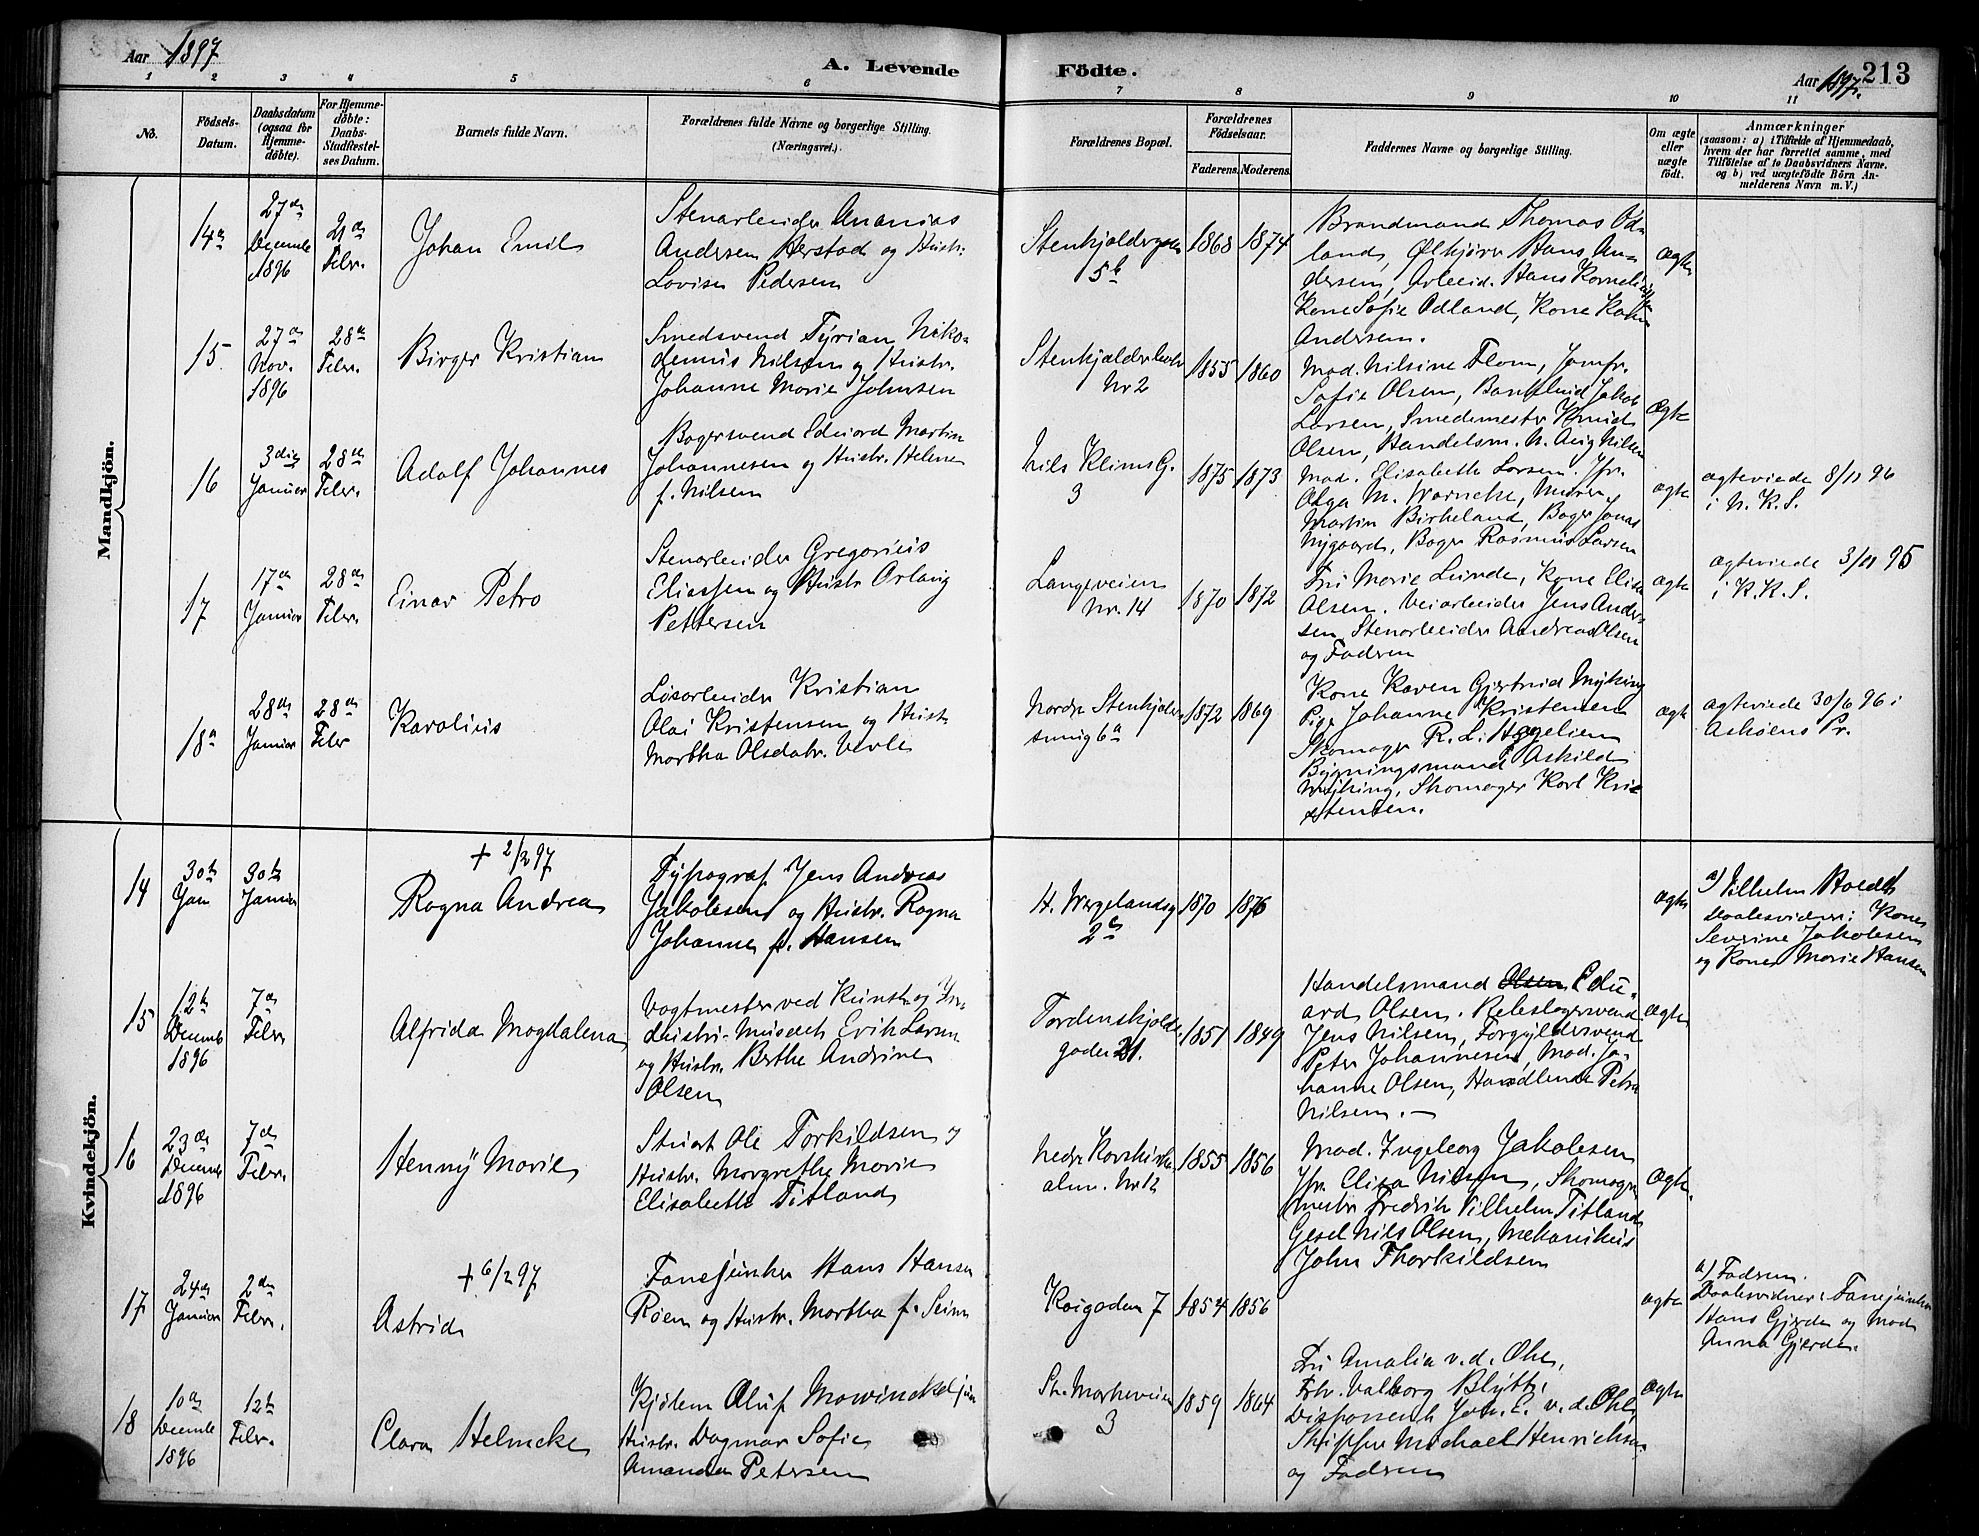 Aar 1897
A. Levende
Födte.
Aar 1897.
213
1 2 3 4 5 6 7 8 9 10 11
No.
Födsels-
Datum.
Daabsdatum
(ogsaa for
Hjemme-
döbte).
For Hjemme-
döbte:
Daabs-
Stadfæstel-
ses Datum.
Barnets fulde Navn.
Forældrenes fulde Navne og borgerlige Stilling.
(Næringsvei.)
Forældrenes Bopæl.
Forældrenes
Födselsaar.
Faderens.
Moderens.
Faddernes Navne og borgerlige Stilling.
Om ægte
eller
uægte
födt.
Anmærkninger
(saasom: a) i Tilfælde af Hjemmedaab,
hvem der har forrettet samme, med
Tilföielse af to Daabsvidners Navne,
og b) ved uægtefödte Börn An-
melderens Navn m. V.)
Mandkjön.
14a
27de
Decembr
1896
21de
Febr.
Johan Emil
Stenarbeider Ananias
Andersen Herstad og Hustr.
Lovise Pedersen
5b
1868
1874
Brandmand Thomas Od-
land, Ølkjører Hans An-
dersen, Arbeid. Hans
Kone Sofie Odland, Kone
Andersen.
Ægte
15
27de
Nov.
1896
28de
Febr.
Birger Kristian
Smedsvend Tyrian Niko-
demus Nilsen og Hustr.
Johanne Marie Johnsen
Nr 2
1855
1860
Mad. Nilsine Flom, Jomfr.
Sofie Olsen, Jakob
Larsen, Smedemester Knud
Olsen, Handelsm. N. Aug Nilsen
Ægte
16
3die
Januar
28de
Febr.
Adolf Johannes
Bagersvend Eduard Martin
Johannesen og Hustr. Helene
f. Nilsen
Nils Klims G.
3
1875
1873
Mad. Elisabeth Larsen. Jfr.
Olga M. Warncke, Murer
Martin Birkeland, Bager Jonas
Nygaard, Bager Rasmus Larsen
ægte
ægteviede 8/11 96
i N. K. S.
17
17de
Januar
28de
Febr.
Einar Petro
Stenarbeider Gregorius
Eliassen og Hustr
Pettersen
Langeveien
Nr. 14
1870
1872
Fru Marie Lunde, Kone
Olsen. Veiarbeider Jens Ander-
sen, Stenarbeider Andreas Olsen
og Faderen
ægte
ægteviede 3/11 95
i K. K. S.
18a
28de
Januar
28de
Febr
Karolius
Løsarbeider Kristian
Olai Kristensen og Hustr
Martha Olsdatr. Vevle
6a
1872
1869
Kone Karen Gjertrud Myking
Pige Johanne Kristensen
Skomager R. L.
Bygningsmand Askild
Myking, Skomager Karl Kri-
stensen.
ægte
ægteviede 30/6 96 i
Askøens Pr.
Kvindekjön.
14
30te
Jan
30te
Januar
+ 2/2 97
Ragna Andrea
Typograf Jens Andreas
Jakobsen og Hustr. Ragna
Johanne f. Hansen
H. Wergelandsg
1870
1876
ægte
a) Vilhelm
Daabsvidner: Kone
Severine Jakobsen
og Kone Marie Hansen
15
12te
Decemb
1896
7de
Febr
Alfrida Magdalena
Vagtmester ved Kunst og In-
dustri-Museet Erik Larsen
og Hustr. Berthe Andrine
Olsen
Tordenskjolds
gaden 21.
1851
1849
Handelsmand Olsen Edu-
ard Olsen. Rebslagersvend
Jens Nilsen, Forgyldersvend
Peter Johannesen, Mad. Jo-
hanne Olsen, Handlende Petra
Nilsen. —
Ægte
16
23de
Decembr
1896
7de
Febr.
Henny Marie
Stuert Ole Torkildsen og
Hustr. Margrethe Marie
Elisabeth Titland
Nedre Korskirke
alm. Nr 12
1855
1856
Mad. Ingeborg Jakobsen
Jfr. Elisa Nilsen, Skomager
mester Fredrik Vilhelm Titland
Gesel Nils Olsen, Mekanikus
John Thorkildsen
Ægte.
17
24de
Januar
2den
Febr.
+ 6/2 97
Astrid
Fanejunker Hans Hansen
Røen og Hustr. Martha f. Seim
Kaigaden 7
1854
1856
ægte
a) Faderen.
Daabsvidner: Fanejunker
Hans Gjerde og Mad
Anna Gjerde.
18
10de
Decembr
1896
12te
Febr.
Clara Helmcke
Kjøbm Oluf Mowinckel jun
Hustr. Dagmar Sofie
Amanda Petersen
St. Markeveien
3
1859
1864
Fru Amalia v. d. Ohe,
Frk. Valborg Blytt,
Disponent Joh. E. v. d. Ohe,
Skipper Michael Henrichsen
og Faderen
Ægte